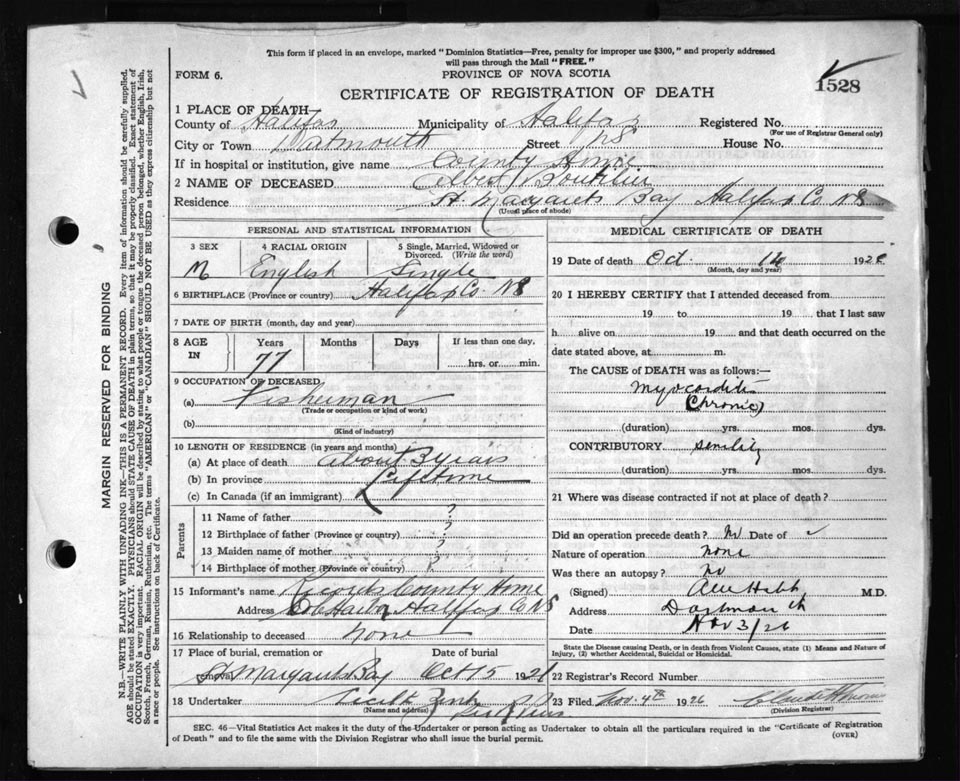 This form if placed in an envelope, marked "Dominion Statistics—Free, penalty for improper use $300," and properly addressed
will pass through the Mail "FREE."
FORM 6.
PROVINCE OF NOVA SCOTIA
1528
CERTIFICATE OF REGISTRATION OF DEATH
1 PLACE OF DEATH—
County of Halifax Municipality of Halifax Registered No.
(For use of Registrar General only)
City or Town Dartmouth Street NS House No.
If in hospital or institution, give name County Home
2 NAME OF DECEASED Albert Boutilier
Residence St. Margarets Bay Halifax Co NS
(Usual place of abode)
PERSONAL AND STATISTICAL INFORMATION
3 SEX 4 RACIAL ORIGIN 5 Single, Married, Widowed or Divorced. (Write the word)
M English Single
6 BIRTHPLACE (Province or country) Halifax Co. NS
7 DATE OF BIRTH (month, day and year)
8 AGE IN Years Months Days If less than one day,
77 hrs. or min.
9 OCCUPATION OF DECEASED
(a) Fisherman
(Trade or occupation or kind of work)
(b)
(Kind of industry)
10 LENGTH OF RESIDENCE (in years and months)
(a) At place of death about 3 years
(b) In province Lifetime
(c) In Canada (if an immigrant)
Parents
11 Name of father ?
12 Birthplace of father (Province or country) ?
13 Maiden name of mother ?
14 Birthplace of mother (Province or country) ?
15 Informant's name County Home
Address Halifax Co NS
16 Relationship to deceased none
17 Place of burial, cremation or Date of burial
St Margarets Bay Oct 15 1926
18 Undertaker
(Name and address)
MEDICAL CERTIFICATE OF DEATH
19 Date of death Oct. 14 1926
(Month, day and year)
20 I HEREBY CERTIFY that I attended deceased from
19 to 19 that I last saw
h alive on 19 and that death occurred on
date stated above, at m.
The CAUSE of DEATH was as follows:—
Myocarditis
(Chronic)
(duration) yrs. mos. dys.
CONTRIBUTORY senility
(duration) yrs. mos. dys.
21 Where was disease contracted if not at place of death?
Did an operation precede death? No Date of
Nature of operation none
Was there an autopsy? No
(Signed) M.D.
Address Dartmouth
Date Nov 3/26
State the Disease causing Death, or in death from Violent Causes, state (1) Means and Nature of Injury, (2) whether Accidental, Suicidal or Homicidal.
22 Registrar's Record Number
23 Filed Nov. 4th 1926
(Division Registrar)
SEC. 46—Vital Statistics Act makes it the duty of the Undertaker or person acting as Undertaker to obtain all the particulars required in the "Certificate of Registration
of Death" and to file the same with the Division Registrar who shall issue the burial permit.
(OVER)
MARGIN RESERVED FOR BINDING
N.B.—WRITE PLAINLY WITH UNFADING INK—THIS IS A PERMANENT RECORD. Every item of information should be carefully supplied.
AGE should be stated EXACTLY. PHYSICIANS should STATE CAUSE OF DEATH in plain terms, so that it may be properly classified. Exact statement of
OCCUPATION is very important. RACIAL ORIGIN will be described by stating to what people or tongue the deceased person belonged, whether English, Irish,
Scotch, French, German, Russian, Ruthenian, etc. The terms "AMERICAN" or "CANADIAN" SHOULD NOT BE USED as they express citizenship but not
a race or people. See instructions on back of Certificate.